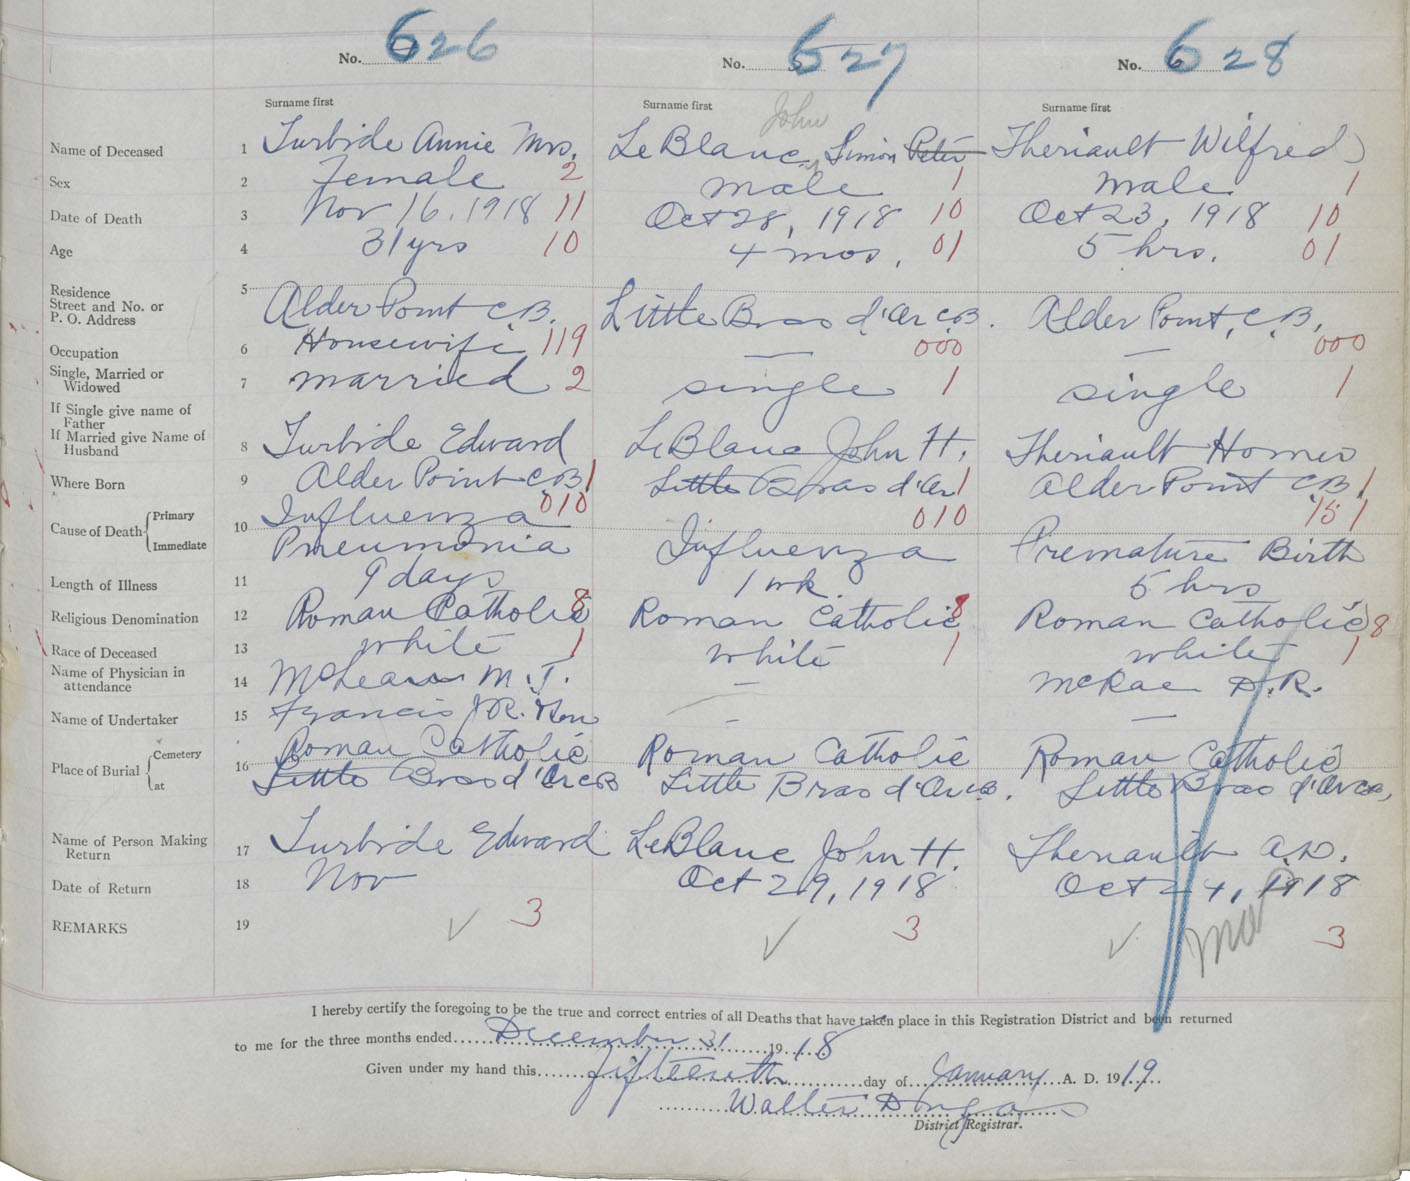 No. 626 No. 627 No. 628
Surname first Surname first Surname first
John
Name of Deceased 1 Turbide Annie Mrs. LeBlanc, Simon Peter Theriault Wilfred
Sex 2 Female 2 male 1 male 1
Date of Death 3 Nov 16, 1918 11 Oct 28, 1918 10 Oct 23, 1918 10
Age 4 31 yrs 10 4 mos. 01 5 hrs. 01
Residence 5
Street and No. or
P. O. Address Alder Point C.B. Little Bras d'Or C.B. Alder Point, C.B.
Occupation 6 Housewife 119 — 000 — 000
Single, Married or
Widowed 7 married 2 single 1 single 1
If Single give name of
Father
If Married give Name of
Husband 8 Turbide Edward LeBlanc John H. Theriault Homer
Where Born 9 Alder Point C.B. 1 Little Bras d'Or 1 Alder Point C.B. 1
010 010 151
Cause of Death Primary 10 Influenza
Immediate Pneumonia Influenza Premature Birth
Length of Illness 11 9 days 1 wk. 5 hrs
Religious Denomination 12 Roman Catholic 8 Roman Catholic 8 Roman Catholic 8
Race of Deceased 13 white 1 white 1 white 1
Name of Physician in
attendance 14 McLean M.J. — McRae D.R.
Name of Undertaker 15 Francis J.R. — —
Place of Burial Cemetery 16 Roman Catholic Roman Catholic Roman Catholic
at Little Bras d'Or C.B. Little Bras d'Or C.B. Little Bras d'Or C.B.
Name of Person Making
Return 17 Turbide Edward LeBlanc John H. Theriault A.D.
Date of Return 18 Nov Oct 29, 1918 Oct 24, 1918
REMARKS 19 ✓ 3 ✓ 3 ✓ 3
I hereby certify the foregoing to be the true and correct entries of all Deaths that have taken place in this Registration District and been returned
to me for the three months ended December 31 1918
Given under my hand this fifteenth day of January A. D. 1919
Walter
District Registrar.